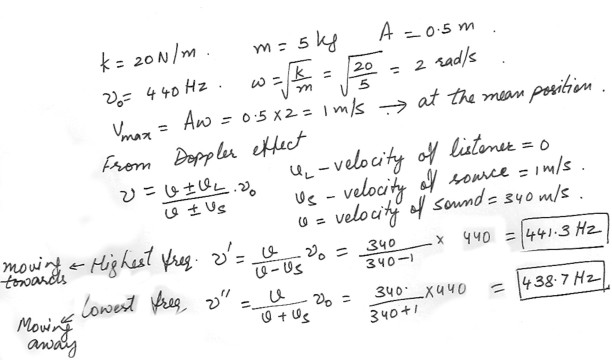 k = 20 N/m. m = 5 kg A = 0.5 m.
ν₀ = 440 Hz. ω = √(k/m) = √(20/5) = 2 rad/s
V_max = Aω = 0.5 × 2 = 1 m/s → at the mean position.
From Doppler effect
υ_L – velocity of listener = 0
ν = (υ ± υ_L)/(υ ± υ_s) · ν₀ υ_s – velocity of source = 1 m/s.
υ = velocity of sound = 340 m/s.
moving towards ← Highest freq. ν' = υ/(υ – υ_s) ν₀ = 340/(340 – 1) × 440 = 441.3 Hz
Moving away ← Lowest freq. ν'' = υ/(υ + υ_s) ν₀ = 340./(340 + 1) × 440 = 438.7 Hz